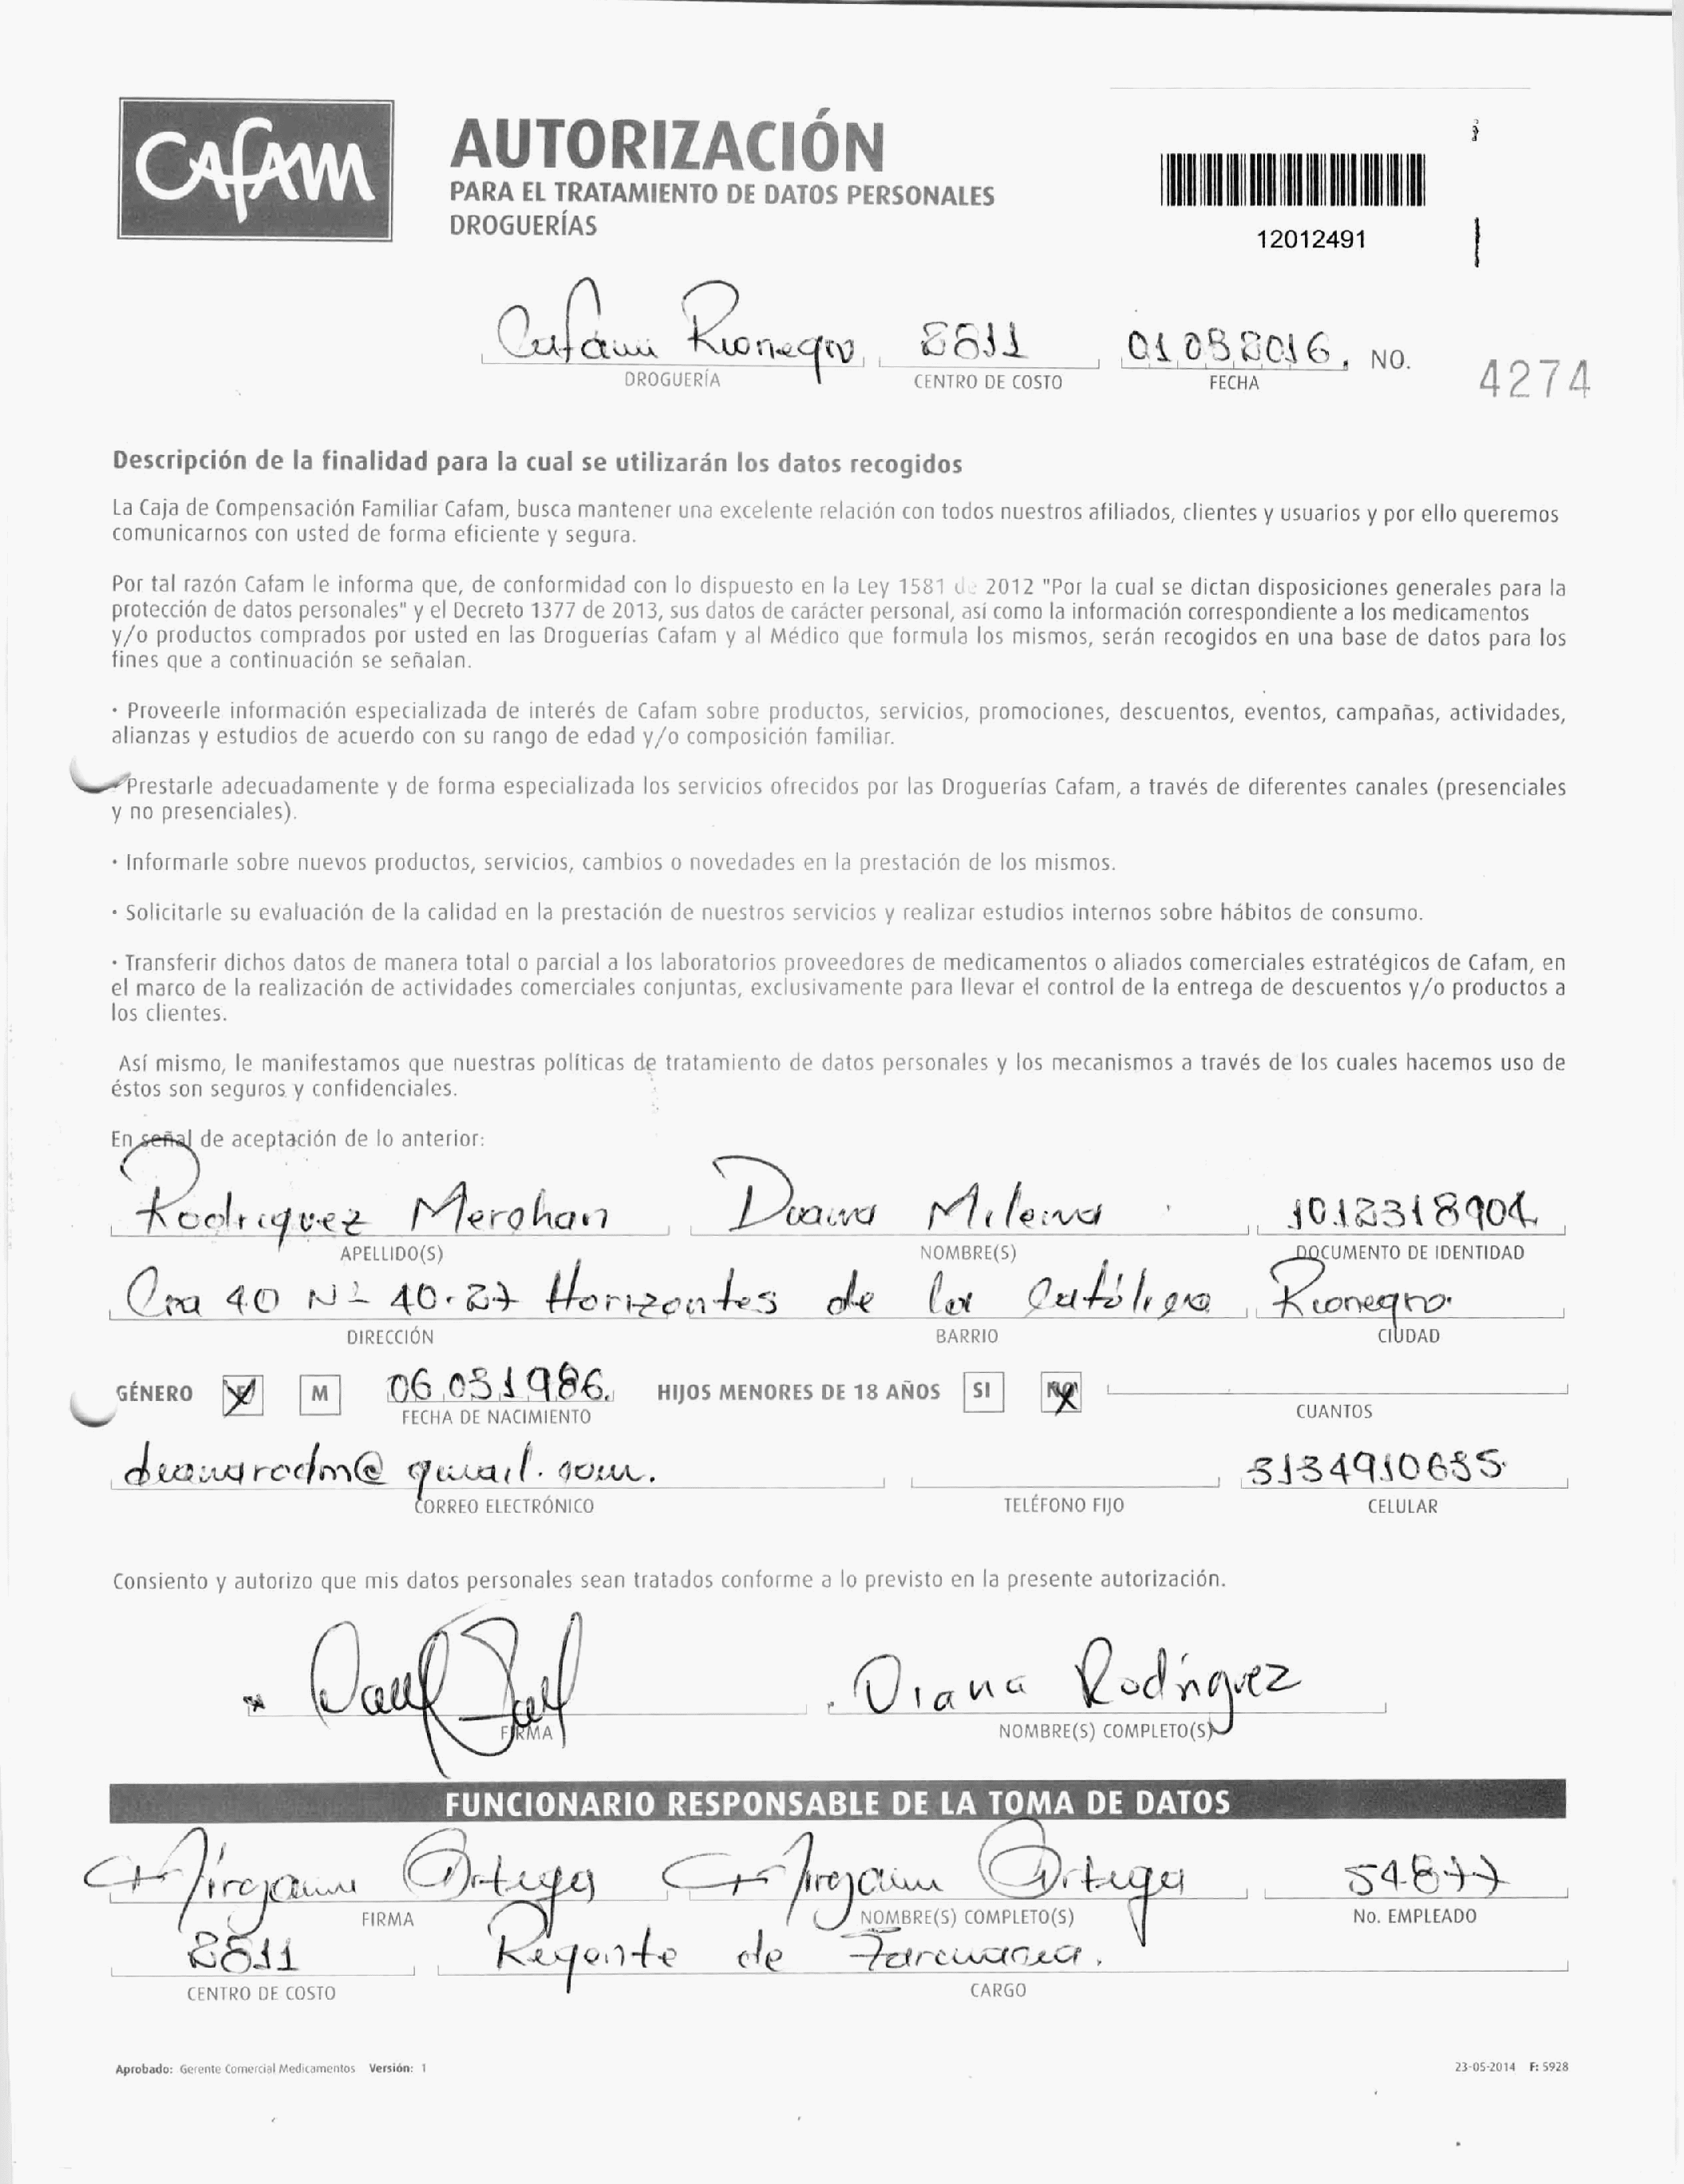 Cafam
AUTORIZACIÓN
PARA EL TRATAMIENTO DE DATOS PERSONALES
DROGUERÍAS
12012491
Cafam Rionegro 8811 01 03 2016. NO. 4274
DROGUERÍA CENTRO DE COSTO FECHA
Descripción de la finalidad para la cual se utilizarán los datos recogidos
La Caja de Compensación Familiar Cafam, busca mantener una excelente relación con todos nuestros afiliados, clientes y usuarios y por ello queremos
comunicarnos con usted de forma eficiente y segura.
Por tal razón Cafam le informa que, de conformidad con lo dispuesto en la Ley 1581 de 2012 "Por la cual se dictan disposiciones generales para la
protección de datos personales" y el Decreto 1377 de 2013, sus datos de carácter personal, así como la información correspondiente a los medicamentos
y/o productos comprados por usted en las Droguerías Cafam y al Médico que formula los mismos, serán recogidos en una base de datos para los
fines que a continuación se señalan.
· Proveerle información especializada de interés de Cafam sobre productos, servicios, promociones, descuentos, eventos, campañas, actividades,
alianzas y estudios de acuerdo con su rango de edad y/o composición familiar.
Prestarle adecuadamente y de forma especializada los servicios ofrecidos por las Droguerías Cafam, a través de diferentes canales (presenciales
y no presenciales).
· Informarle sobre nuevos productos, servicios, cambios o novedades en la prestación de los mismos.
· Solicitarle su evaluación de la calidad en la prestación de nuestros servicios y realizar estudios internos sobre hábitos de consumo.
· Transferir dichos datos de manera total o parcial a los laboratorios proveedores de medicamentos o aliados comerciales estratégicos de Cafam, en
el marco de la realización de actividades comerciales conjuntas, exclusivamente para llevar el control de la entrega de descuentos y/o productos a
los clientes.
Así mismo, le manifestamos que nuestras políticas de tratamiento de datos personales y los mecanismos a través de los cuales hacemos uso de
éstos son seguros y confidenciales.
En señal de aceptación de lo anterior:
Rodriguez Merchan Diana Milena 1012318904
APELLIDO(S) NOMBRE(S) DOCUMENTO DE IDENTIDAD
Cra 40 Nº 40-27 Horizontes de la Católica Rionegro.
DIRECCIÓN BARRIO CIUDAD
GÉNERO F M 06 03 1986. HIJOS MENORES DE 18 AÑOS SI NO
FECHA DE NACIMIENTO CUANTOS
dianarodm@gmail.com.
3134910635
CORREO ELECTRÓNICO TELÉFONO FIJO CELULAR
Consiento y autorizo que mis datos personales sean tratados conforme a lo previsto en la presente autorización.
Diana Rodríguez
FIRMA NOMBRE(S) COMPLETO(S)
FUNCIONARIO RESPONSABLE DE LA TOMA DE DATOS
Ortega Ortega 54877
FIRMA NOMBRE(S) COMPLETO(S) No. EMPLEADO
8811 Regente de Farmacia.
CENTRO DE COSTO CARGO
Aprobado: Gerente Comercial Medicamentos Versión: 1 23-05-2014 F: 5928